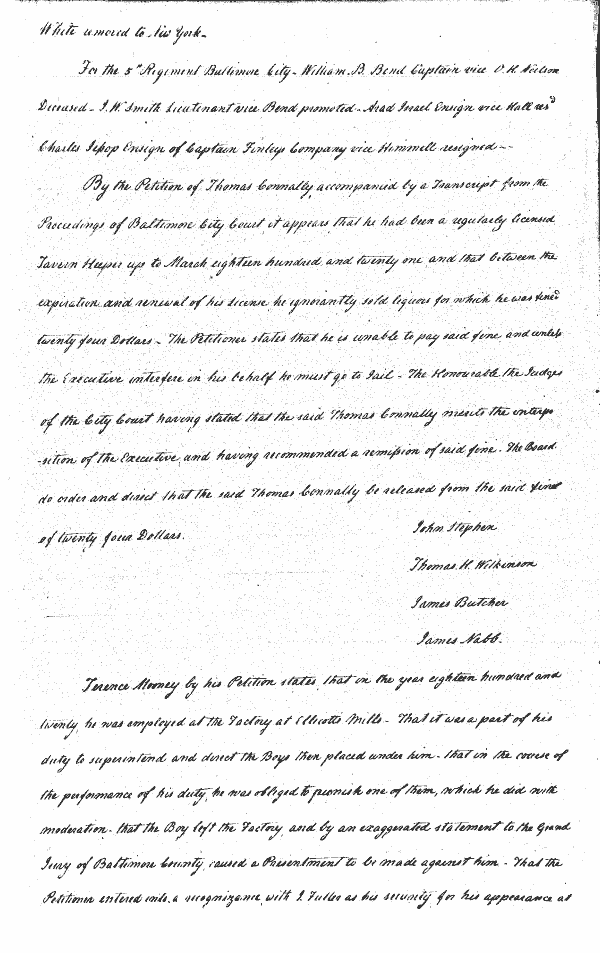 White removed to New York.
For the 5th Regiment Baltimore City - William B. Bend Captain vice O. H. Neilson
Deceased - J. W. Smith Lieutenant vice Bend promoted - Asad Israel Ensign vice Hall resd
Charles Jessop Ensign of Captain Finleys Company vice Himmell resigned -
By the Petition of Thomas Connally, accompanied by a Transcript from the
Proceedings of Baltimore City Court it appears that he had been a regularly licensed
Tavern Keeper up to March eighteen hundred and twenty one and that between the
expiration and renewal of his License he ignorantly sold liquors for which he was fined
twenty four Dollars - The Petitioner states that he is unable to pay said fine, and unless
the Executive interfere in his behalf he must go to Jail - The Honourable the Judges
of the City Court having stated that the said Thomas Connally merits the interpo
-sition of the Executive, and having recommended a remission of said fine. The Board
do order and direct that the said Thomas Connally be released from the said fine
of twenty four Dollars.
John Stephen
Thomas H. Wilkinson
James Butcher
James Nabb.
Terence Mooney by his Petition states, that in the year eighteen hundred and
twenty, he was employed at the Factory at Ellicotts Mills - That it was a part of his
duty to superintend and direct the Boys then placed under him - that in the course of
the performance of his duty, he was obliged to punish one of them, which he did with
moderation - that the Boy left the Factory, and by an exaggerated statement to the Grand
Jury of Baltimore County, caused a Presentment to be made against him - That the
Petitioner entered into a recognizance, with J. Fuller as his security for his appearance at